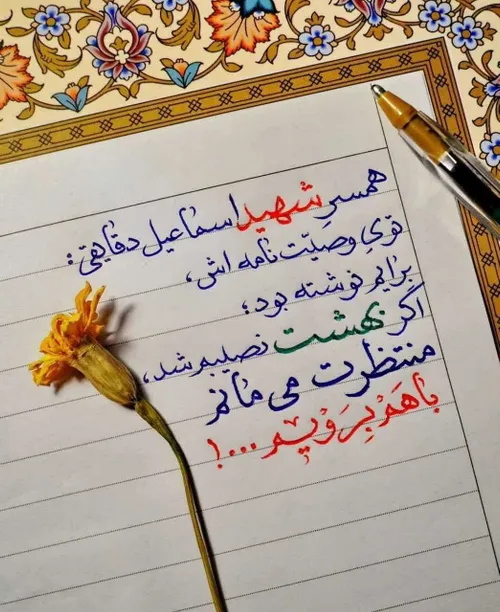 همسرِ شهید اسماعیل دقایقی:
تویِ وصیّت نامه اش،
برایم نوشته بود؛
اگر بهشت نصیبم شد،
منتظرت می مانم
باهَم بِرَویم...!